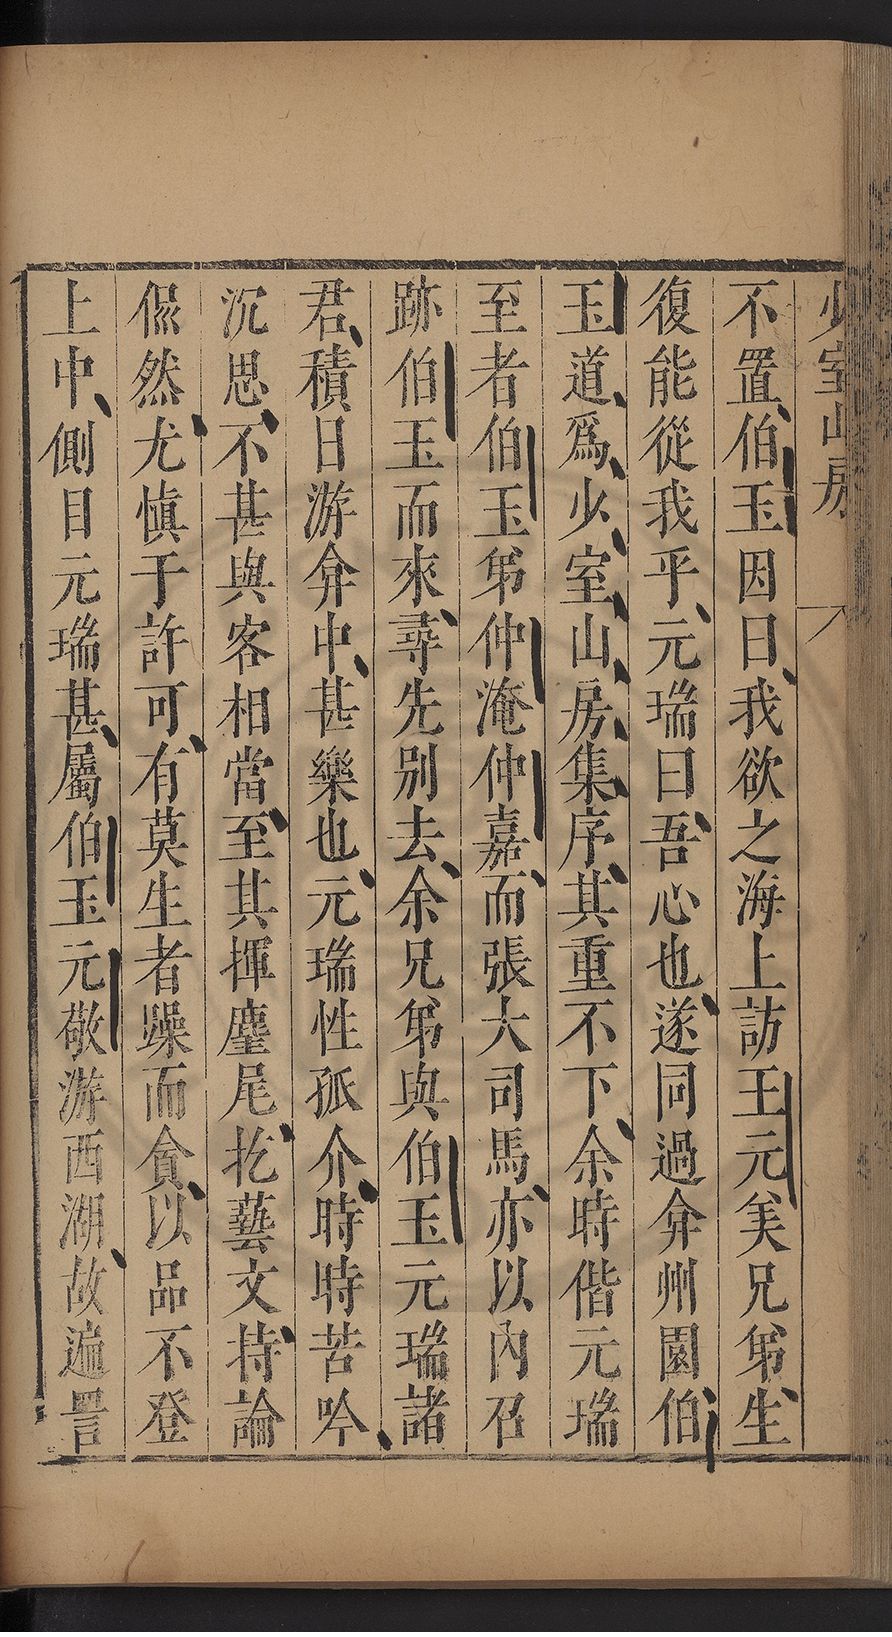 少室山房
不置伯玉因曰我欲之海上訪王元美兄弟生
復能從我乎元瑞曰吾心也遂同過弇州園伯
玉道爲少室山房集序其重不下余時偕元瑞
至者伯玉弟仲淹仲嘉而張大司馬亦以內召
跡伯玉而來尋先別去余兄弟與伯玉元瑞諸
君積日游弇中甚樂也元瑞性孤介時時苦吟
沉思不甚與客相當至其揮麈尾扢藝文持論
侃然尤慎于許可有莫生者躁而貪以品不登
上中側目元瑞甚屬伯玉元敬游西湖故遍詈